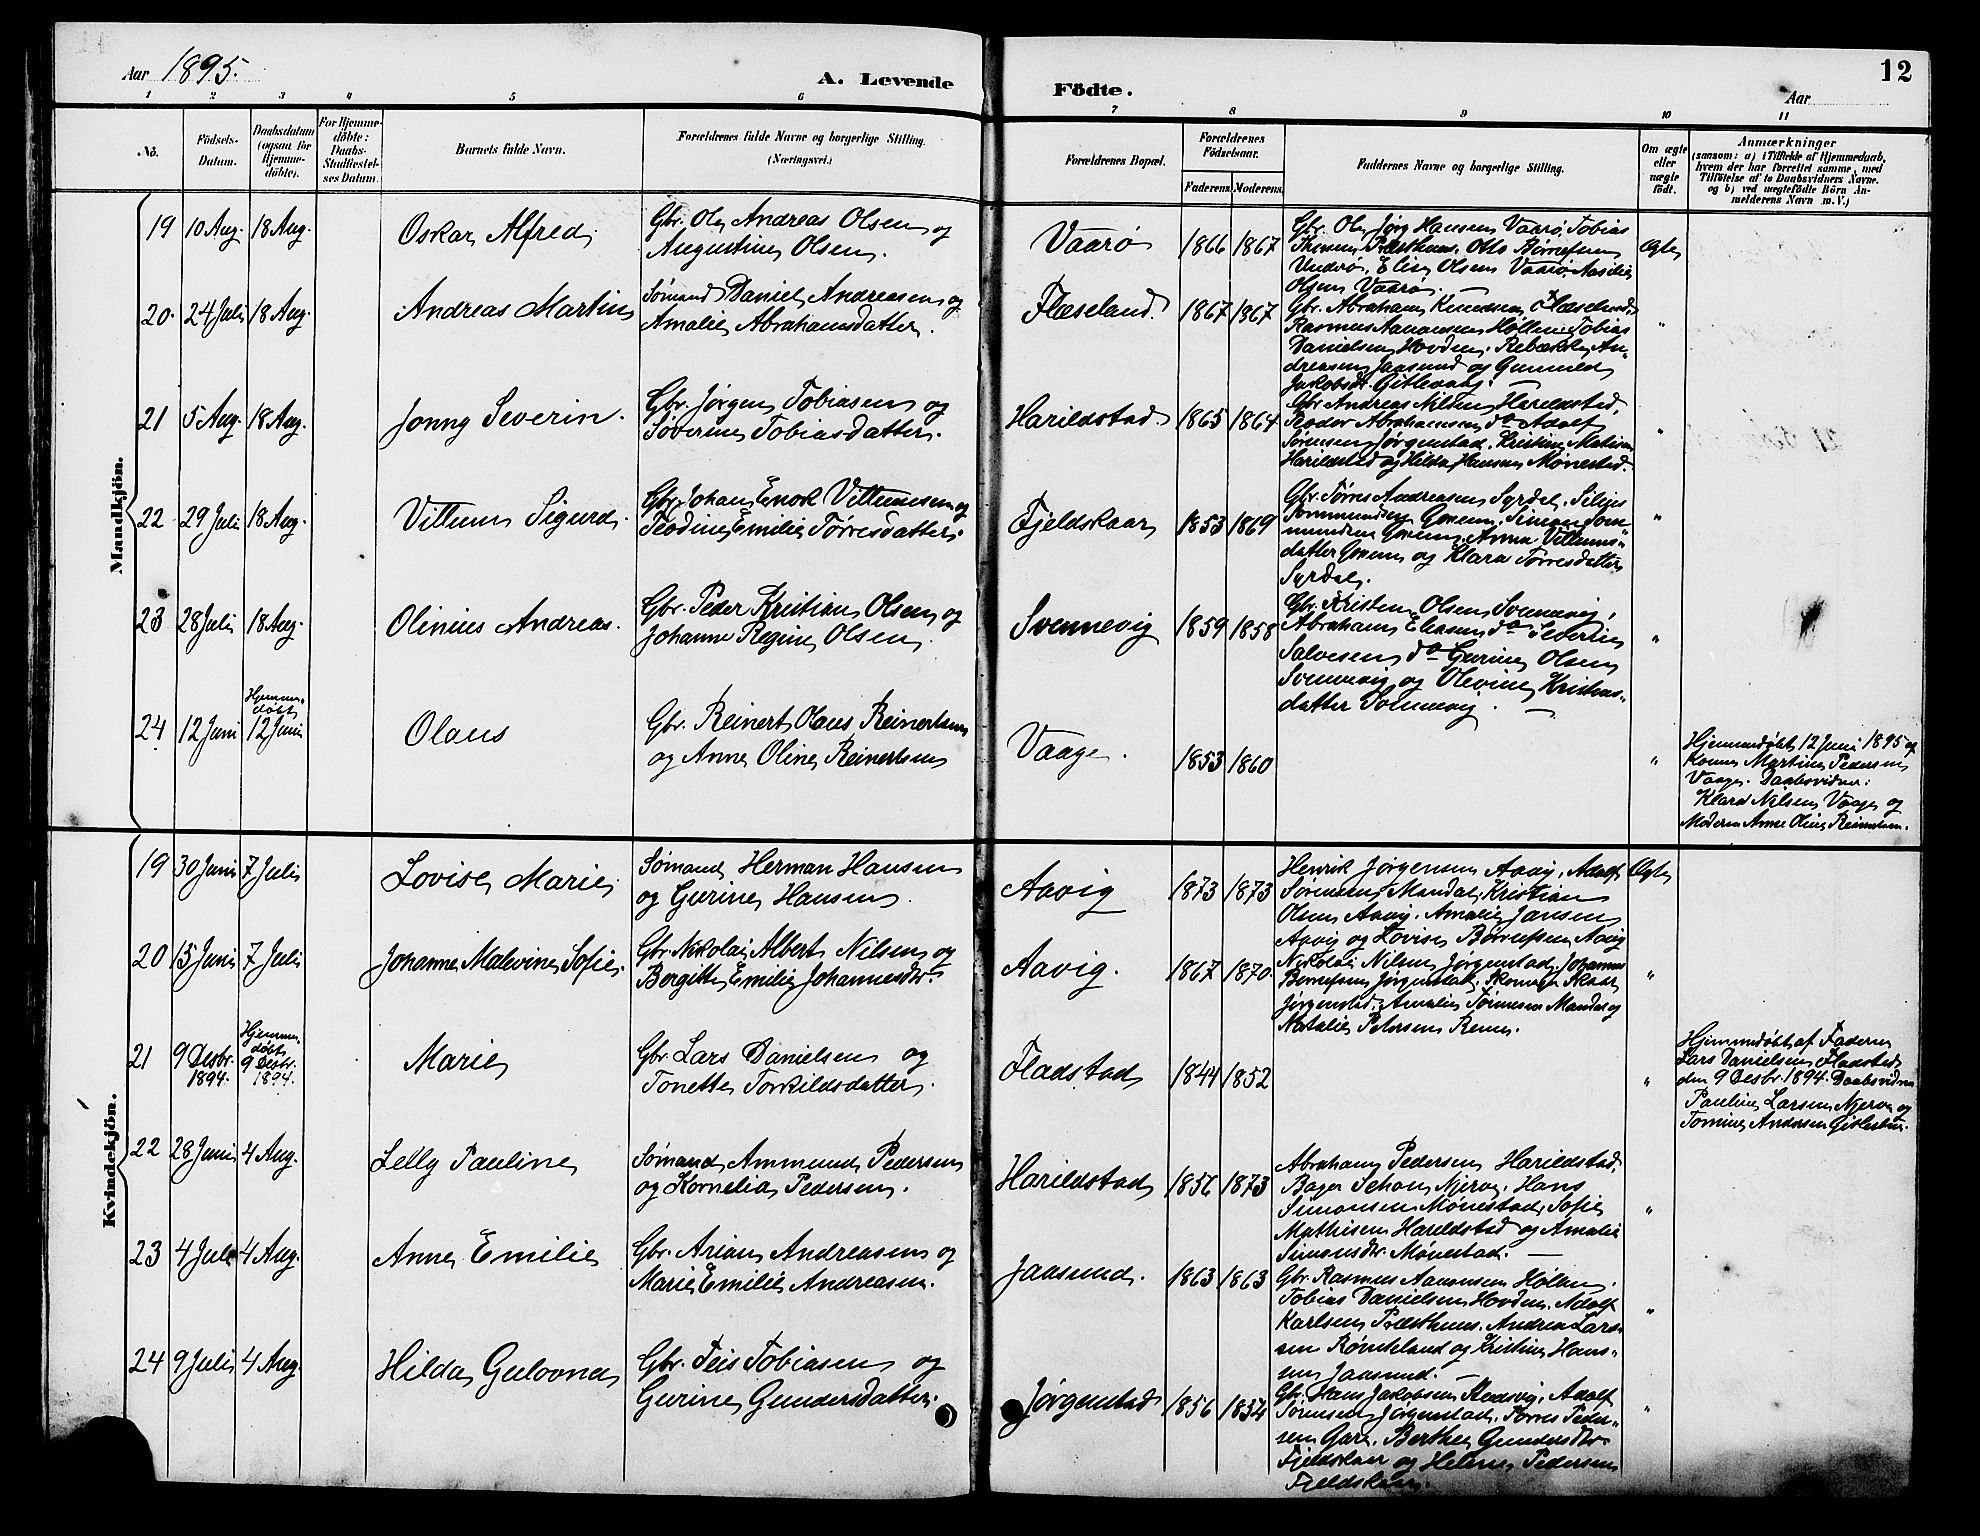 Aar 1895.
A. Levende Födte.
Aar
12
1 2 3 4 5 6 7 8 9 10 11
No.
Födsels-
Datum.
Daabsdatum
(ogsaa for
Hjemme-
döbte).
For Hjemme-
döbte:
Daabs-
Stadfæstel-
ses Datum.
Barnets fulde Navn.
Forældrenes fulde Navne og borgerlige Stilling.
(Næringsvei.)
Forældrenes Bopæl.
Forældrenes
Födselsaar.
Faderens.
Moderens.
Faddernes Navne og borgerlige Stilling.
Om ægte
eller
uægte
födt.
Anmærkninger
(saasom: a) i Tilfælde af Hjemmedaab,
hvem der har forrettet samme, med
Tilföielse af to Daabsvidners Navne.
og b) ved uægtefödte Börn An-
melderens Navn m. V.)
Mandkjön.
19 10 Aug. 18 Aug. Oskar Alfred.
Gbr. Ole Andreas Olsen og
Augustine Olsen.
Vaarø 1866 1867
Gbr. Ole Jørg Hansen Vaarø, Tobias
Præsthuus. Otto Børresen
Underø, Elise Olsen Vaarø
Olsen Vaarø.
Ægte
20. 24 Juli 18 Aug. Andreas Martin
Sømand Daniel Andreasen og
Amalie Abrahamsdatter.
Flæseland. 1867 1867
Gbr. Abraham Knudsen Flæseland,
Rasmus Aanonsen Høllen, Tobias
Danielsen Hovden. Rebækka An-
dreasen Jaasund og Gunnild
Jakobsdr. Gitlevaag.
"
21 5 Aug. 18 Aug. Jonny Severin.
Gbr. Jørgen Tobiasen og
Soverine Tobiasdatter.
Harildstad. 1865 1864
Gbr. Andreas Nilsen Harildstad,
Teodor Abrahamsen do Adolf
Sørensen Jørgenstad, Kristine Matisen
Harildstad og Hilda Hansen Mønestad.
"
22 29 Juli 18 Aug. Vittum Sigurd.
Gbr. Johan Enok Vittumsen og
Teodine Emilie Torresdatter.
Fjeldskaar 1853 1869
Gbr. Tørres Andreasen Syrdal, Silius
Simon Som-
mundsen Anna Vittums-
datter og Klara Torresdatter
Syrdal.
"
23 28 Juli 18 Aug. Olinius Andreas.
Gbr. Peder Kristian Olsen og
Johanne Regine Olsen.
Svennevig 1859 1858
Gbr. Kristen Olsen Svennevig,
Abraham Eliasen do Severin
Salvesen do Gurine Olsen
Svennevig og Olevine Kristens-
datter Svennevig.
"
24 12 Juni Hjemme-
døbt
12 Juni Olaus
Gbr. Reinert Olaus Reinertsen
og Anne Oline Reinertsen
Vaage. 1853 1860
"
Hjemmedøbt 12 Juni 1895 af
Konen Martine Pedersen
Vaage. Daabsvidner:
Klara Nilsen Vaage og
Moderen Anne Oline Reinertsen.
Kvindekjön.
19 30 Juni 7 Juli Lovise Marie.
Sømand Herman Hansen
og Gurine Hansen.
Aavig 1873 1873
Henrik Jørgensen Aavig, Adolf
Sørensen Mandal, Kristian
Olsen Aavig. Amalie Jansen
Aavig og Lovise Børresen Aavig
Ægte
20 15 Juni 7 Juli Johanne Malvine Sofie.
Gbr. Nikolai Albert Nilsen og
Borgitte Emilie Johannesdr.
Aavig. 1867 1870.
Nikolai Nilsen Jørgenstad, Johannes
Berntsen Jørgenstad. Skomager Skaar
Jørgenstad. Amalie Tønnesen Mandal og
Natalie Petersen Remes.
"
21 9 Desbr.
1894. Hjemme-
døbt
9 Desbr.
1894. Marie
Gbr. Lars Danielsen og
Tonette Torkildsdatter.
Fladstad 1844 1852
"
Hjemmedøbt af Faderen
Lars Danielsen Fladstad
den 9 Desbr. 1894. Daabsvidner
Pauline Larsen Njerve og
Tomine Andersen
22 28 Juni 4 Aug. Lelly Pauline
Sømand Ammund Pedersen
og Kornelia Pedersen.
Harildstad 1856 1873
Abraham Pedersen Harildstad,
Bager Schou Njerve. Hans
Simonsen Mønestad, Sofie
Mathisen Harildstad og Amalie
Simonsdr. Mønestad.
"
23 4 Juli 4 Aug. Anne Emilie
Gbr. Arian Andreasen og
Marie Emilie Andreasen.
Jaasund. 1863 1863
Gbr. Rasmus Aanonsen Høllen.
Tobias Danielsen Hovden. Adolf
Karlsen Præsthuus. Andrea Lars-
sen Rønteland og Kristine Hans-
sen Jaasund.
"
24 9 Juli 4 Aug. Hilda Gulovna
Gbr. Teis Tobiasen og
Gurine Gundersdatter.
Jørgenstad 1856 1854
Gbr. Hans Jakobsen Adolf
Sørensen Jørgenstad, Torres Peder-
sen Gare. Berthe Gundersdr.
Fjeldskaar og Helene Pedersen
Fjeldskaar.
"